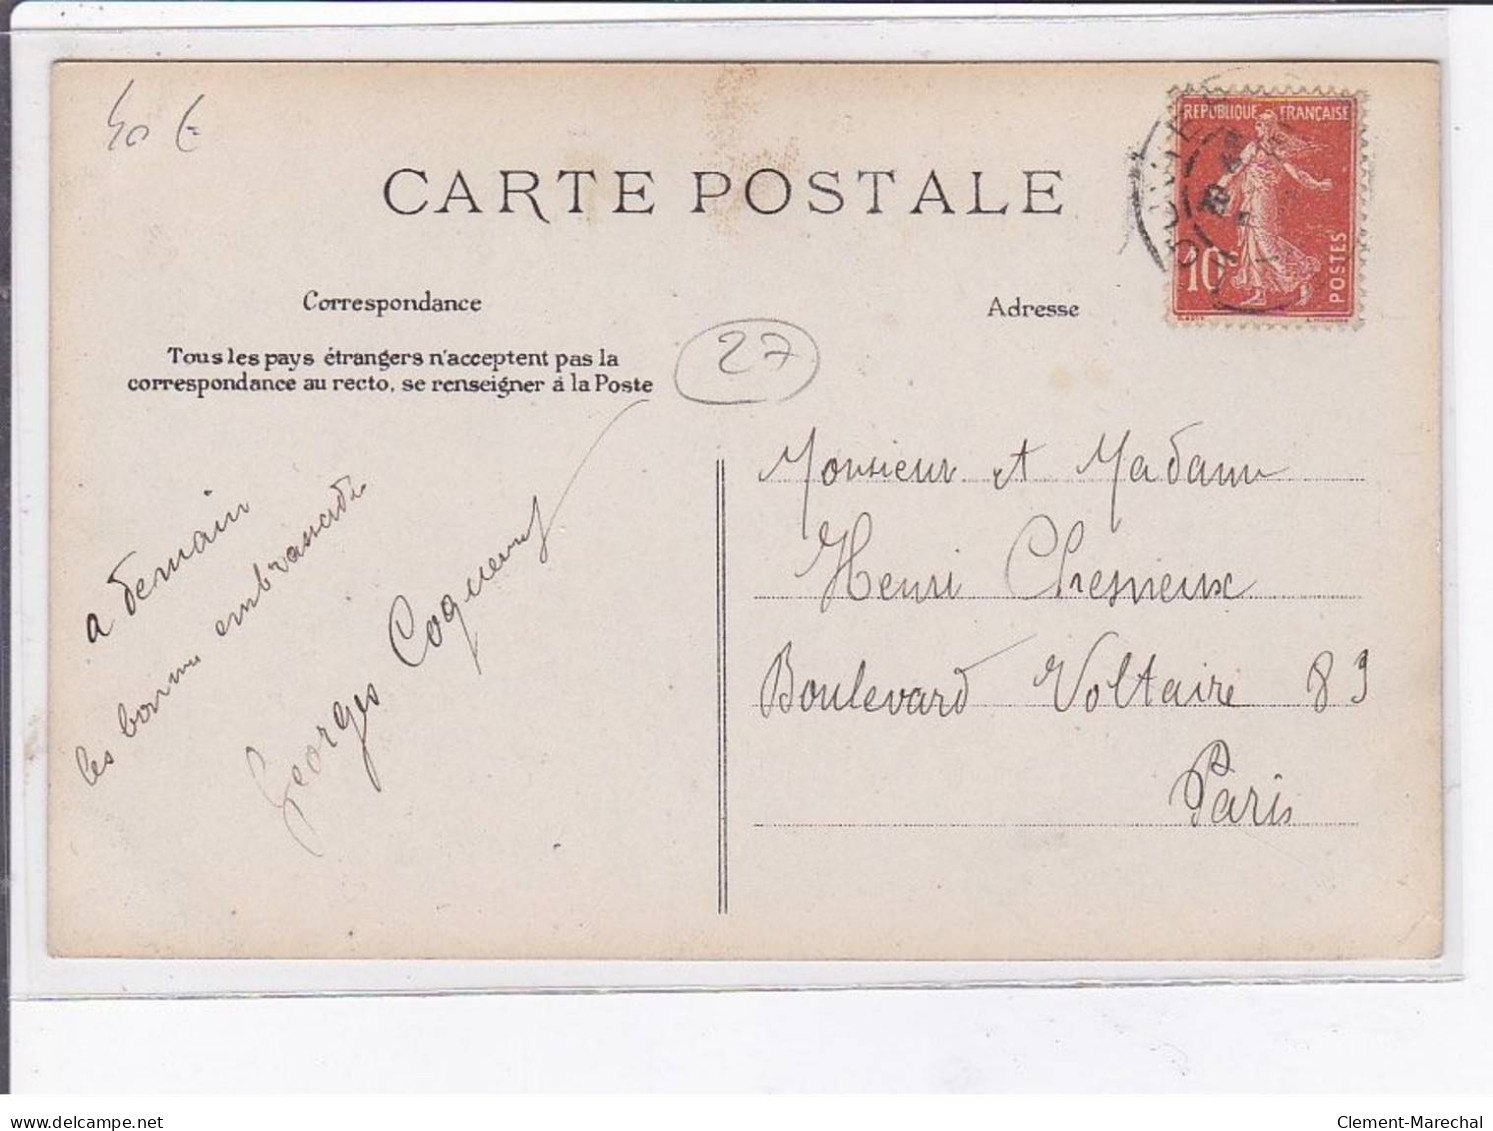 40 €
CARTE POSTALE
RÉPUBLIQUE FRANÇAISE
10c
POSTES
Correspondance
Adresse
Tous les pays étrangers n'acceptent pas la
correspondance au recto, se renseigner à la Poste
27
a demain
les bonnes embrassades
Georges
Monsieur et Madame
Henri Chesneux
Boulevard Voltaire 83
Paris
delcampe.net
Clement-Marechal